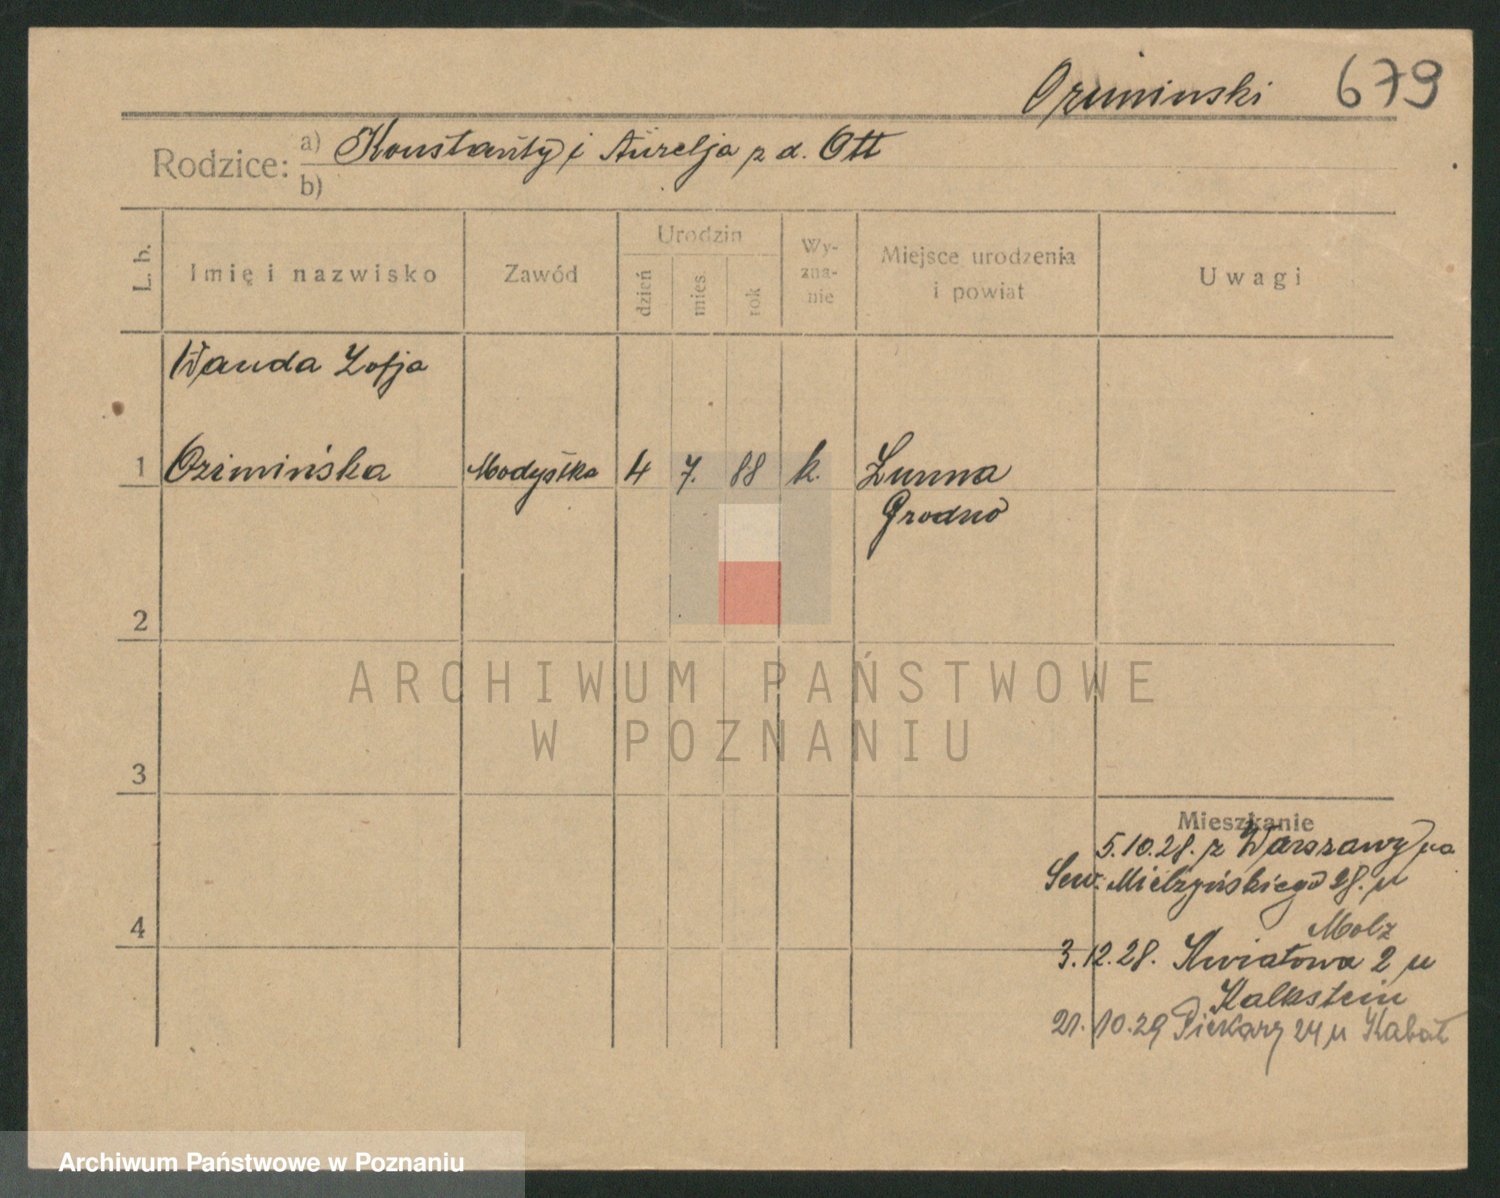 Oziminski 679
Rodzice: a) Konstanty i Aurelja z d. Ott
b)
L. b. Imię i nazwisko Zawód Urodzin dzień mies. rok Wy-zna-nie Miejsce urodzenia i powiat Uwagi
Wanda Zofja
1 Ozimińska Modystka 4 7. 88 k. Łunna
Grodno
2
ARCHIWUM PAŃSTWOWE
W POZNANIU
3
Mieszkanie
5.10.28. z Warszawy na
Sew. Mielżyńskiego 28. u
4 Molz
3.12.28. Kwiatowa 2 u
Kalkstein
21.10.29 Piekary 24 u Kabat
Archiwum Państwowe w Poznaniu